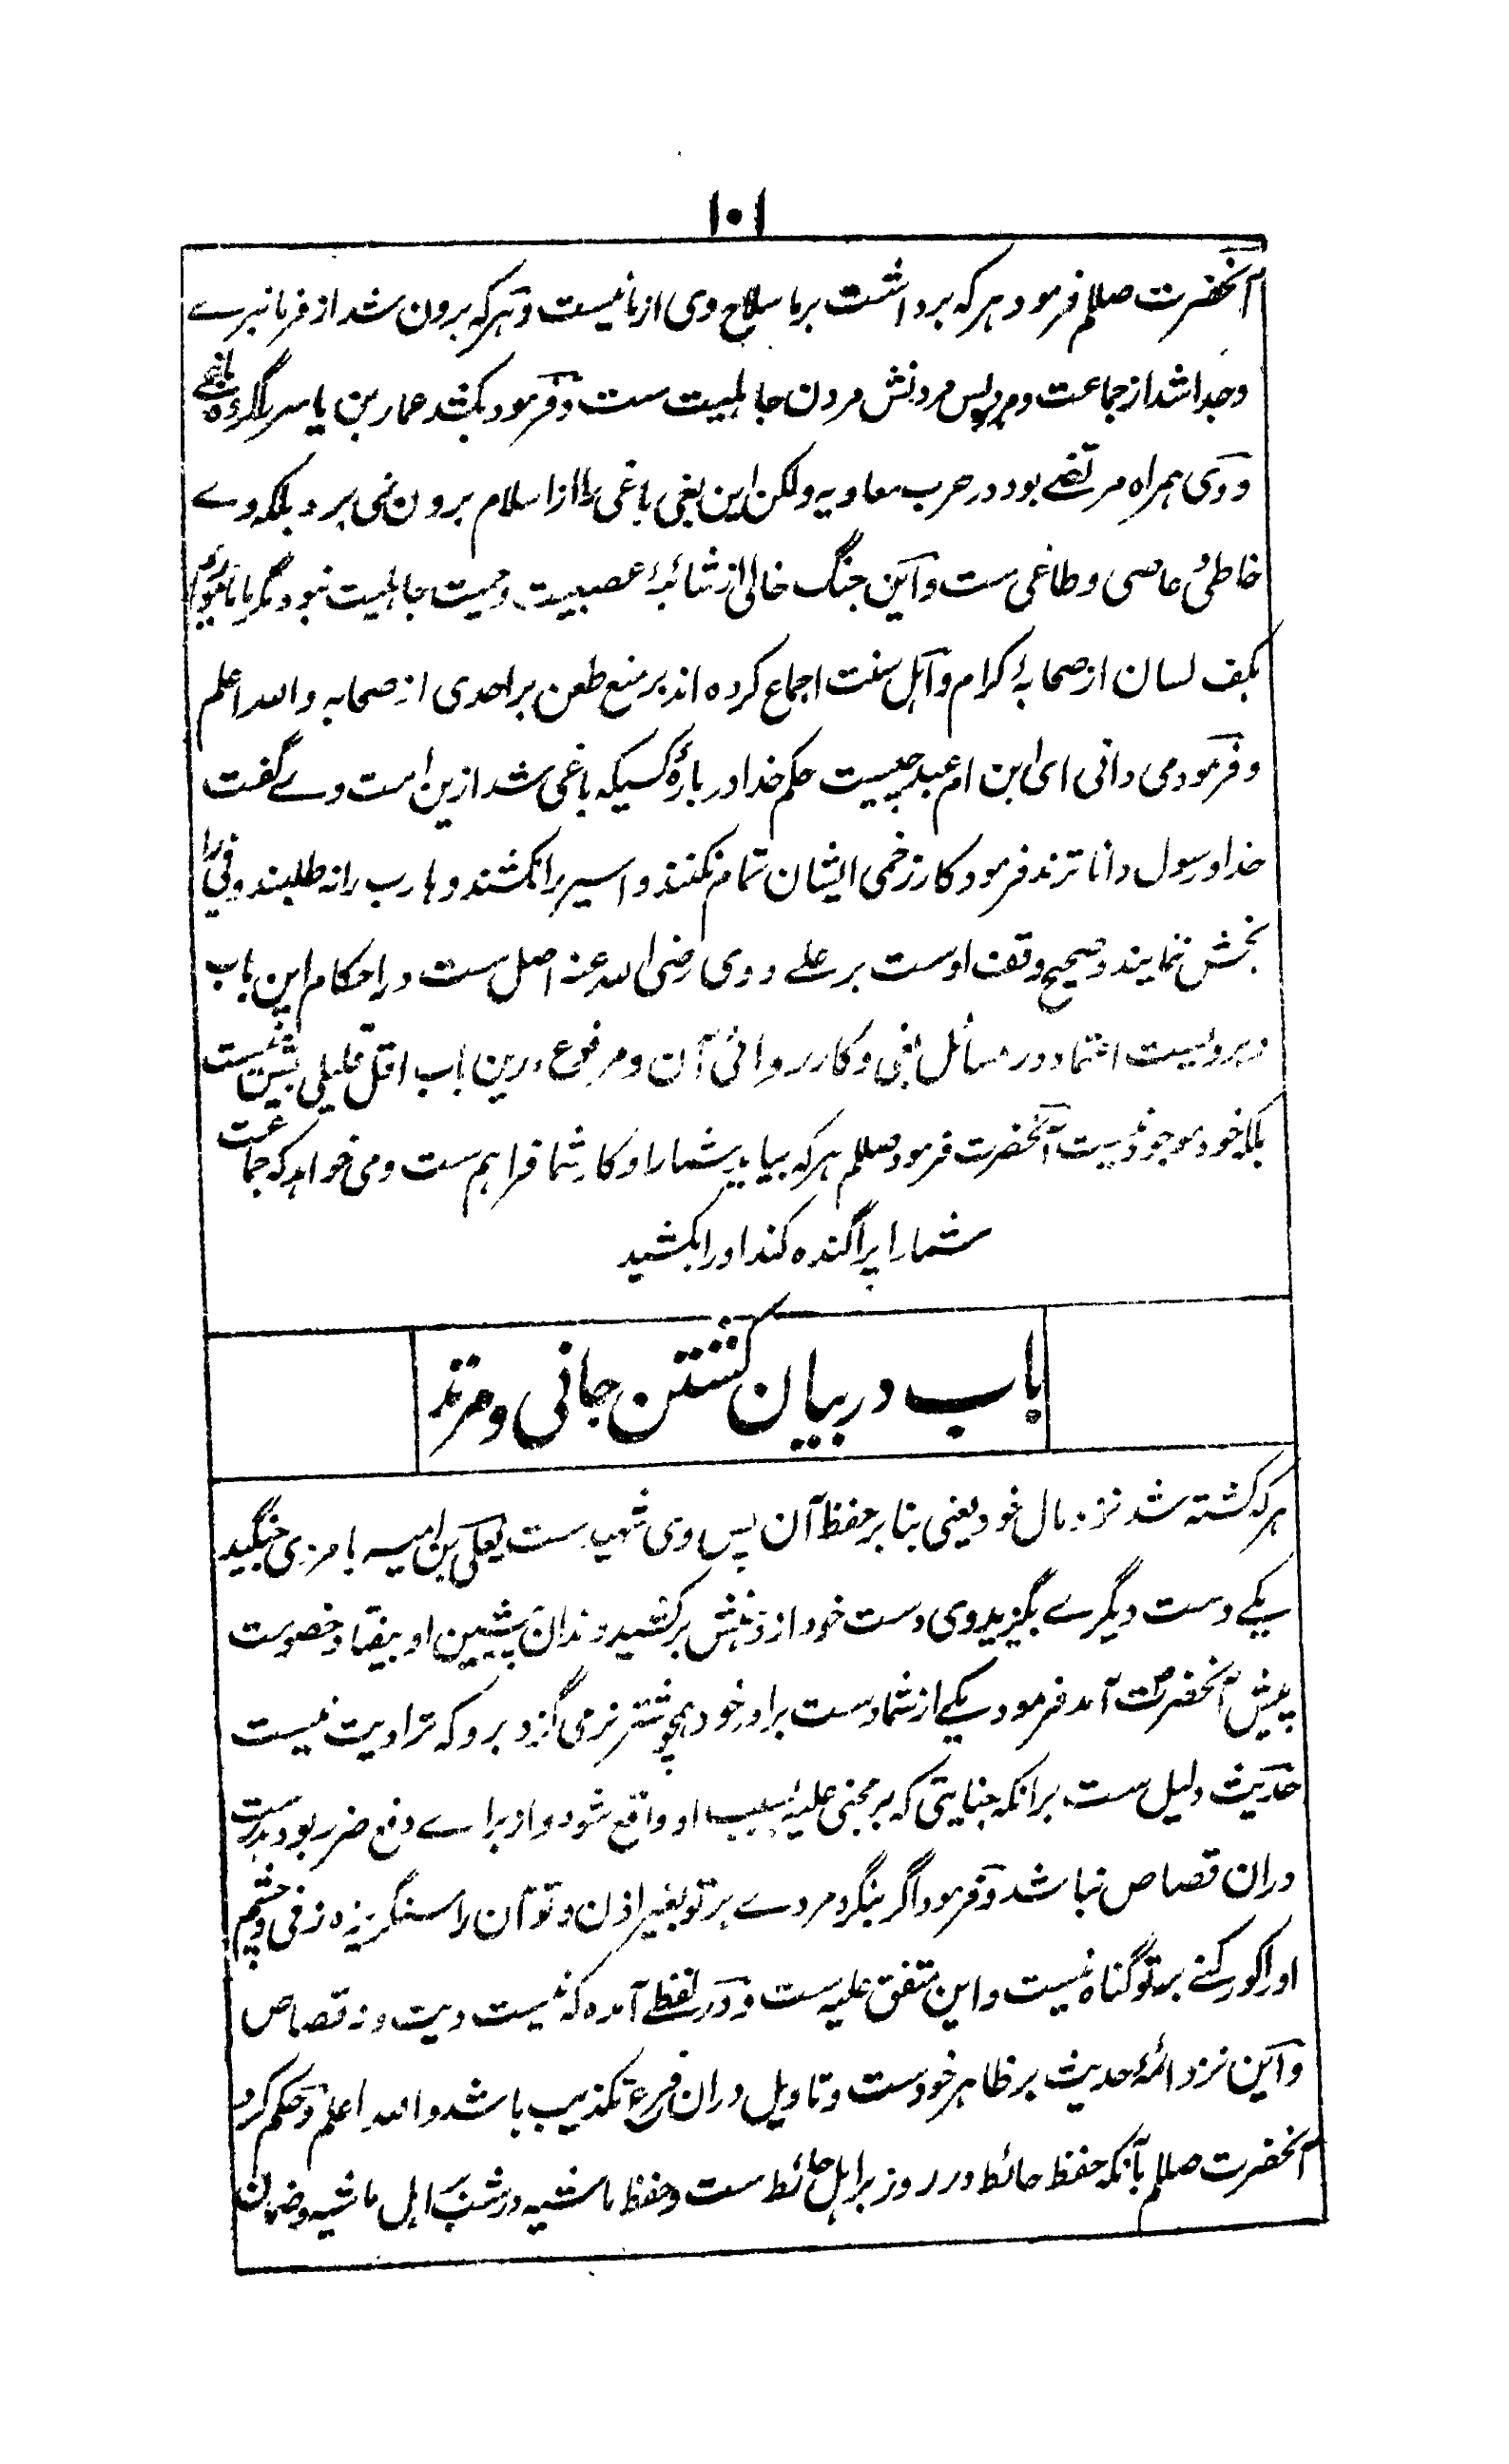 ۱۰۱
آنحضرت صللم فرمود هر که برداشت بر ما سلاح وی از ما نیست و هر که برون شد از فرمانبرے
و جدا شد از جماعت و مرد پس مردنش مردن جاهلیت ست و فرمود بکشد عمار بن یاسر را گروه باغے
و وی همراه مرتضے بود در حرب معاویه ولکن این بغی باغی را از اسلام برون نمی برد بلکه وے
خاطئ عاصی و طاغی ست و این جنگ خالی از شائبهٔ عصبیت و حمیت جاهلیت نبود مگر ما ماموریم
بکف لسان از صحابهٔ کرام و اهل سنت اجماع کرده اند بر منع طعن بر احدی از صحابه والله اعلم
و فرمود می دانی ای ابن ام عبد چیست حکم خدا در بارهٔ کسیکه باغی شد ازین امت وے گفت
خدا و رسول دانا ترند فرمود کار زخمی ایشان تمام نکنند و اسیر را نکشند و هارب را نه طلبند و فی را
بخش ننمایند و صحیح وقف اوست بر علے و وی رضی الله عنه اصل ست در احکام این باب
و بروئیست اعتماد در مسائل بغی و کارروائی آن و مرفوع درین باب اقل قلیلی بیش نیست
بلکه خود موجود نیست آنحضرت فرمود صللم هر که بیاید شما را و کار شما فراهم ست و می خواهد که جماعت
شما را پراگنده کند او را بکشید
باب در بیان کشتن جانی و مرتد
هر که کشته شد نزد مال خود یعنی بنابر حفظ آن پس وی شهید ست یعلی بن امیه با مردی جنگید
یکے دست دیگرے بگزید وی دست خود از دهنش برکشید دندان پیشین او بیفتاد خصومت
پیش آنحضرت صللم آمد فرمود یکے از شما دست برادر خود همچو شتر نر می گزد برو که ترا دیت نیست
حدیث دلیل ست برانکه جنایتی که بر مجنی علیه بسبب او واقع شود و از براے دفع ضرر بود هدرست
دران قصاص نباشد و فرمود اگر بنگرد مردے بر تو بغیر اذن و تو آن را سنگریزه زنی و چشم
او را کور کنے بر تو گناه نیست و این متفق علیه ست و در لفظے آمده که نیست دیت و نه قصاص
و این نزد ائمهٔ حدیث بر ظاهر خودست و تاویل دران فرع تکذیب باشد والله اعلم و حکم کرد
آنحضرت صللم بآنکه حفظ حائط در روز بر اهل حائط ست و حفظ ماشیه در شب بر اهل ماشیه و ضمان